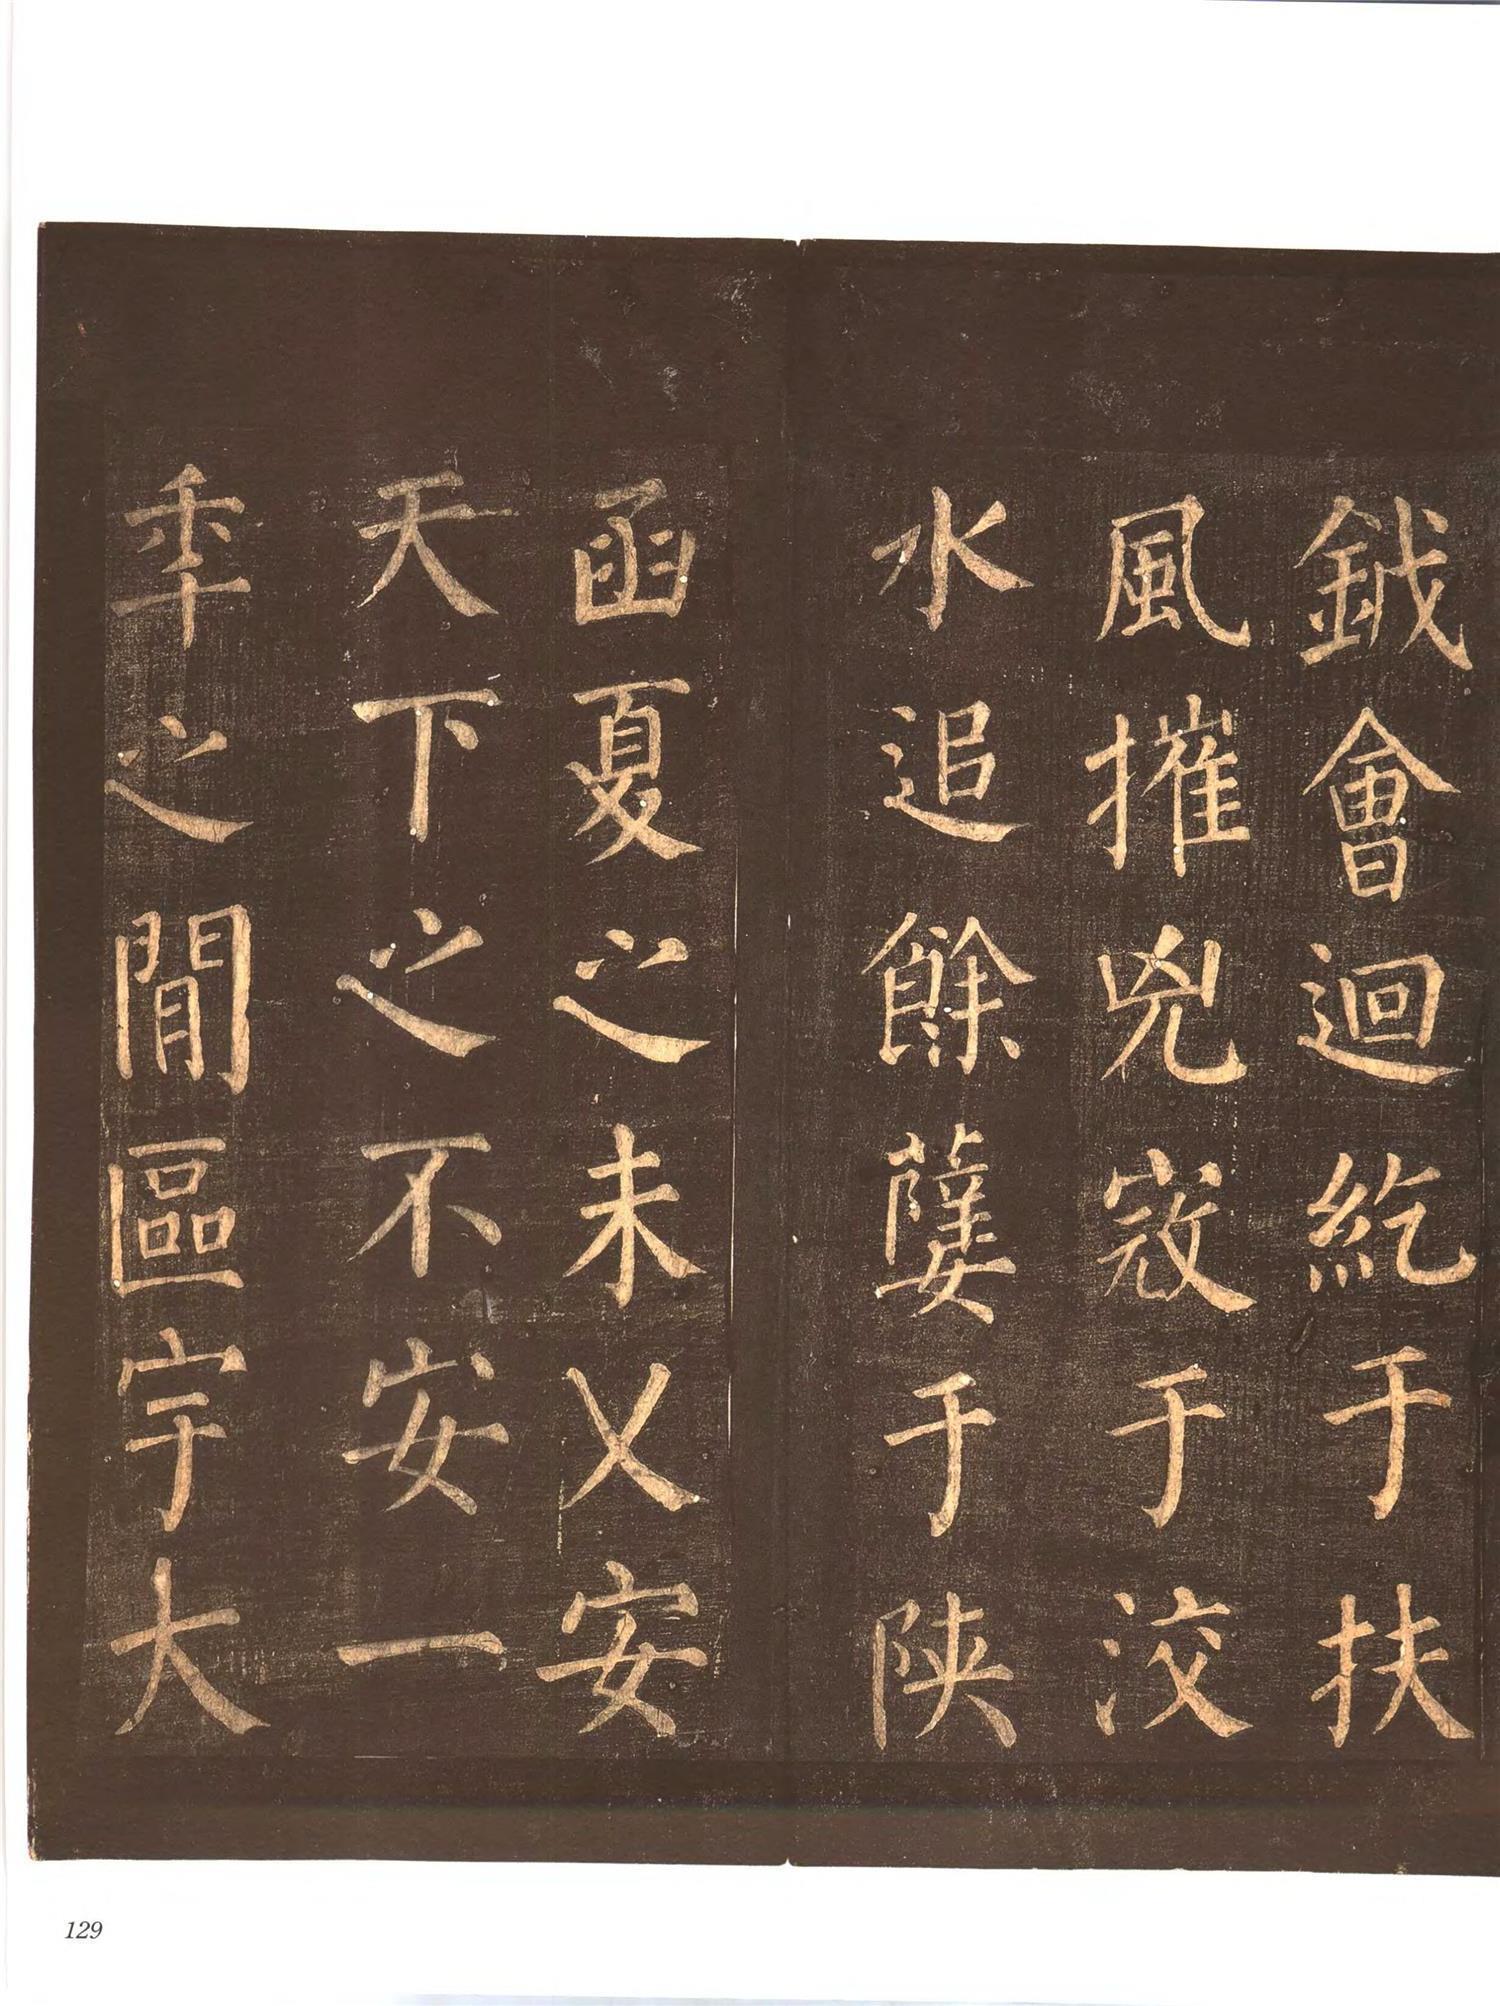 鉞會迴紇于扶
風摧兇寇于洨
水追餘孽于陕
函夏之未乂安
天下之不安一
秊之閒區宇大
129